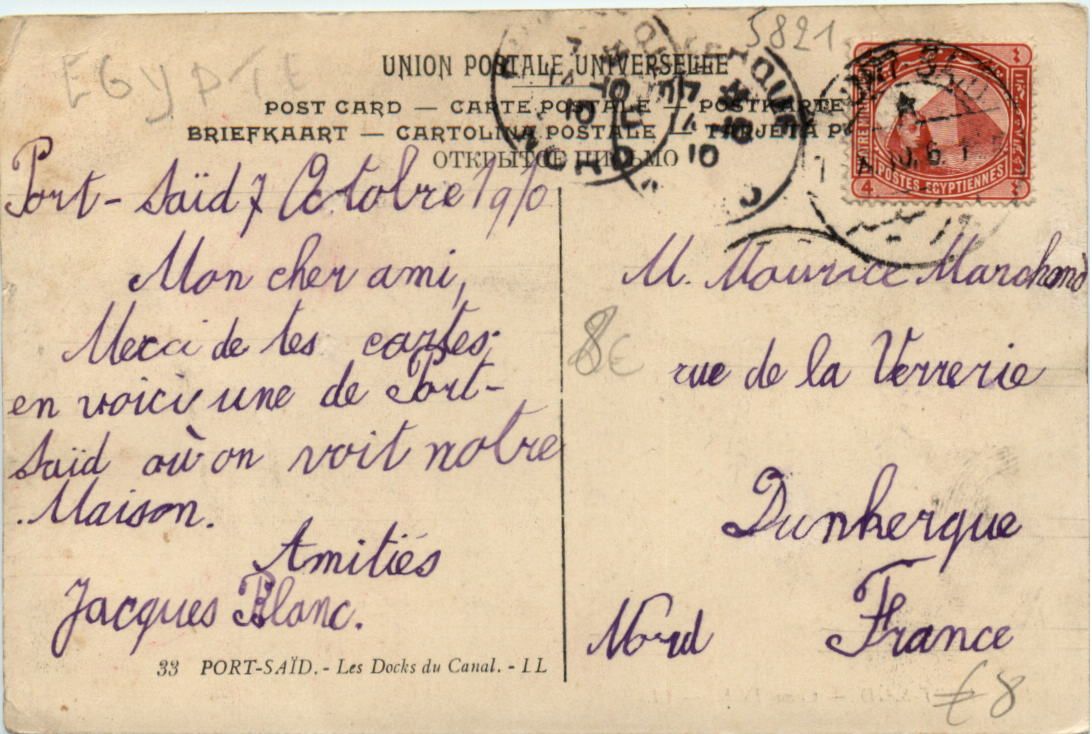 EGYPTE
5821
UNION POSTALE UNIVERSELLE
POST CARD — CARTE POSTALE — POSTKARTE
BRIEFKAART — CARTOLINA POSTALE — TARJETA
ОТКРЫТОЕ ПИСЬМО
POSTES EGYPTIENNES
4
NORD
Port-Saïd 7 Octobre 1910
Mon cher ami,
Merci de tes cartes
en voici une de Port-
Saïd où on voit notre
Maison.
Amitiés
Jacques Blanc.
33 PORT-SAÏD. - Les Docks du Canal. - LL
M. Maurice Marchand
8€
rue de la Verrerie
Dunkerque
Nord France
€8